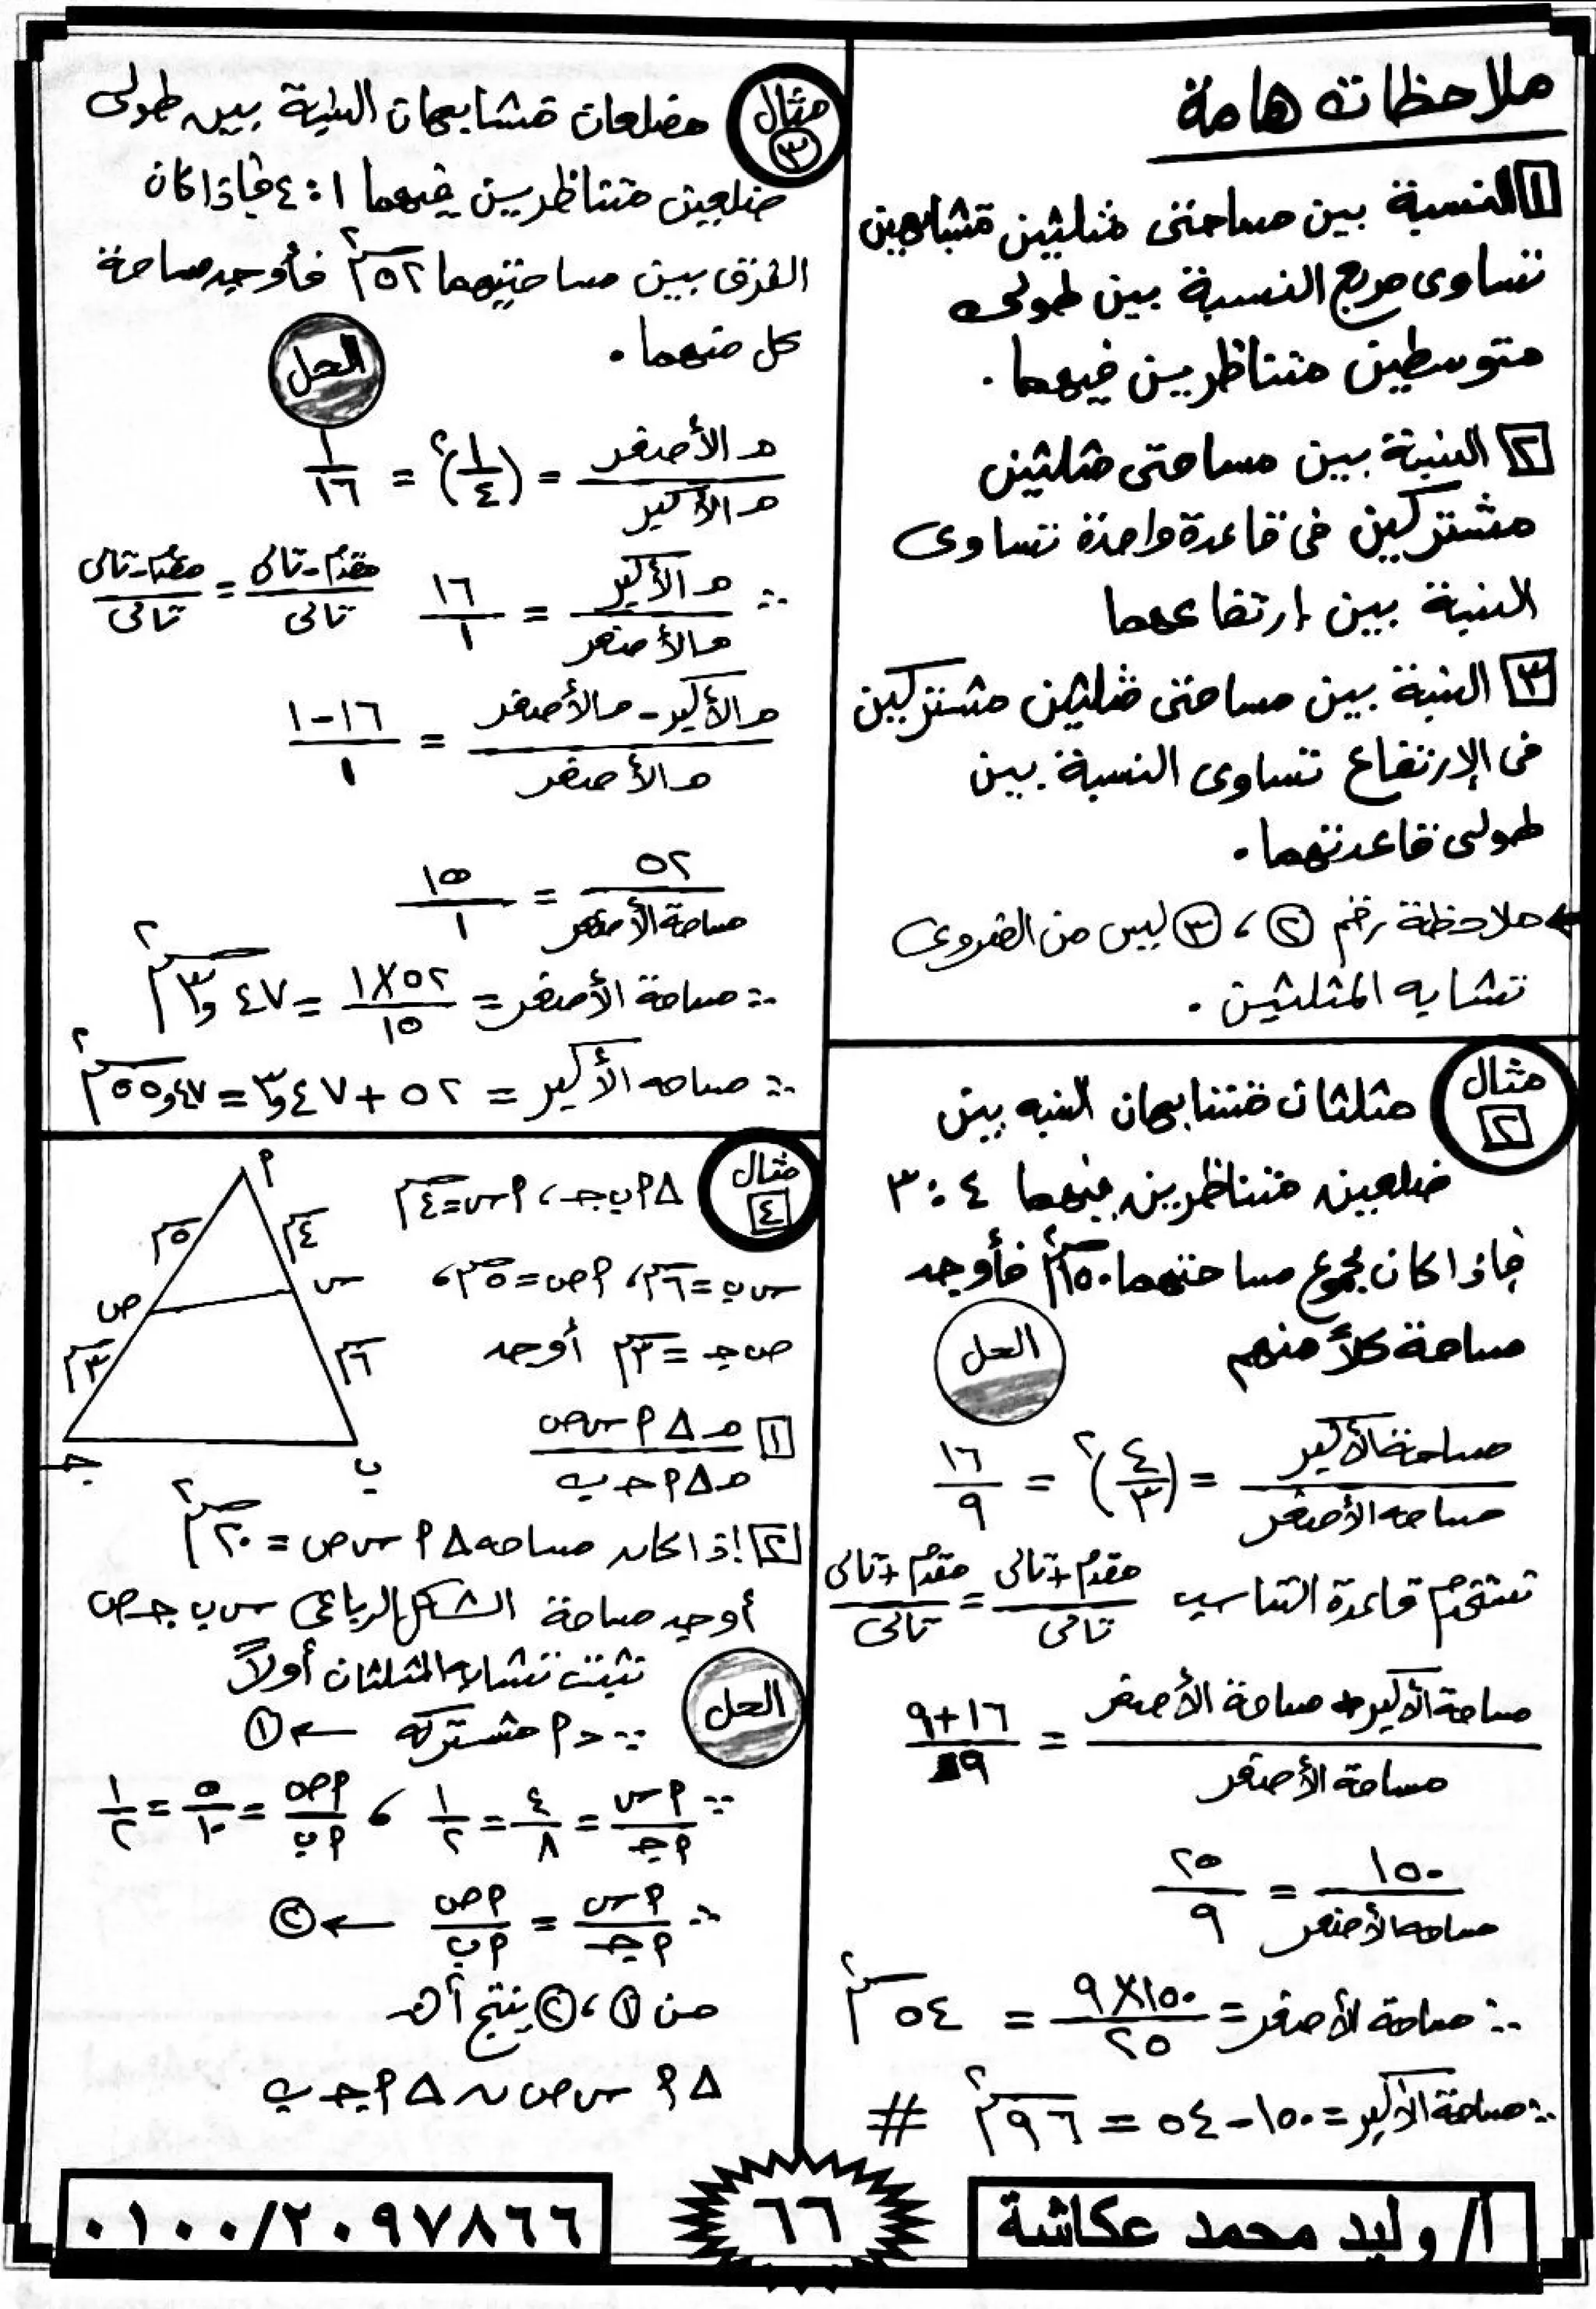 ملاحظات هامة
١ النسبة بين مساحتى مثلثين متشابهين
تساوى مربع النسبة بين طولى
متوسطين متناظرين فيهما .
٢ النسبة بين مساحتى مثلثين
مشتركين فى قاعدة واحدة تساوى
النسبة بين إرتفاعهما
٣ النسبة بين مساحتى مثلثين مشتركين
فى الإرتفاع تساوى النسبة بين
طولى قاعدتهما .
← ملاحظة رقم ٢ ، ٣ ليس من الضرورى
تشابه المثلثين .
مثال ٢
مثلثان متشابهان النسبه بين
ضلعين متناظرين فيهما ٤ : ٣
فإذا كان مجموع مساحتهما ١٥٠ سم٢ فأوجد
مساحة كلاً منهم
الحل
مساحة الأكبر / مساحه الأصغر = (٤/٣)٢ = ١٦/٩
نستخدم قاعدة التناسب مقدم+تالى / تالى = مقدم+تالى / تالى
مساحة الأكبر + مساحة الأصغر / مساحة الأصغر = ١٦+٩ / ٩
١٥٠ / مساحه الأصغر = ٢٥ / ٩
∴ مساحة الأصغر = ١٥٠×٩ / ٢٥ = ٥٤ سم٢
∴ مساحة الأكبر = ١٥٠ - ٥٤ = ٩٦ سم٢ #
مثال ٣
مضلعان متشابهان النسبة بين طولى
ضلعين متناظرين فيهما ١ : ٤ فإذا كان
الفرق بين مساحتيهما ٥٢ سم٢ فأوجد مساحة
كل منهما .
الحل
م الأصغر / م الأكبر = (١/٤)٢ = ١/١٦
∴ م الأكبر / م الأصغر = ١٦/١ مقدم-تالى / تالى = مقدم-تالى / تالى
م الأكبر - م الأصغر / م الأصغر = ١٦-١ / ١
٥٢ / مساحة الأصغر = ١٥ / ١
∴ مساحة الأصغر = ٥٢×١ / ١٥ = ٤٧و٣ سم٢
∴ مساحه الأكبر = ٥٢ + ٤٧و٣ = ٤٧و٥٥ سم٢
مثال ٤
△ ٢ ب جـ ، ٢ س = ٤ سم
س ب = ٦ سم ، ٢ ص = ٥ سم ،
ص جـ = ٣ سم أوجد
١ م △ ٢ س ص / م △ ٢ جـ ب
٢ إذا كان مساحه △ ٢ س ص = ٢٠ سم٢
أوجد مساحة الشكل الرباعى س ب جـ ص
٢
٥ سم
٤ سم
ص
س
٣ سم
٦ سم
جـ
ب
الحل
نثبت تشابه المثلثان أولاً
∵ > ٢ مشتركه ← ١
∵ ٢ س / ٢ جـ = ٤/٨ = ١/٢ ، ٢ ص / ٢ ب = ٥/١٠ = ١/٢
∴ ٢ س / ٢ جـ = ٢ ص / ٢ ب ← ٢
من ١ ، ٢ ينتج أن
△ ٢ س ص ~ △ ٢ جـ ب
أ/ وليد محمد عكاشة
٦٦
٠١٠٠/٢٠٩٧٨٦٦